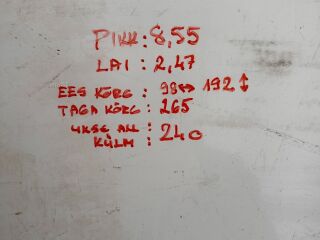 PIKK: 8,55
LAI: 2,47
EES KÕRG: 98↔192↕
TAGA KÕRG: 265
UKSE ALL : 240
KÜLM :